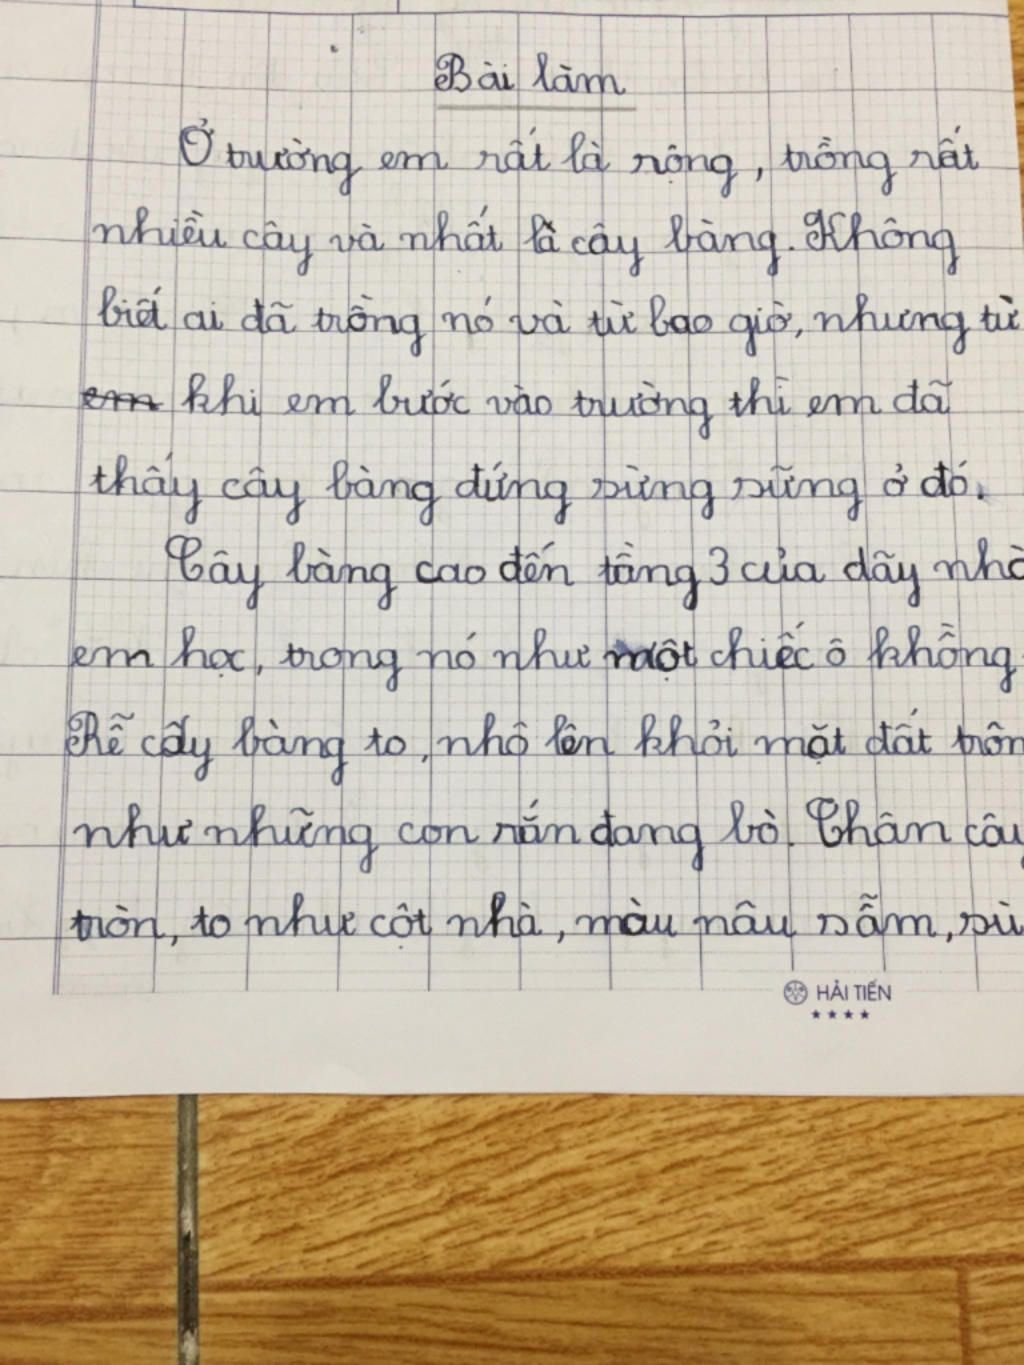 Bài làm
Ở trường em rất là rộng, trồng rất
nhiều cây và nhất là cây bàng. Không
biết ai đã trồng nó và từ bao giờ, nhưng từ
em khi em bước vào trường thì em đã
thấy cây bàng đứng sừng sững ở đó.
Cây bàng cao đến tầng 3 của dãy nhà
em học, trong nó như một chiếc ô khồng
Rễ cây bàng to, nhô lên khỏi mặt đất trôn
như những con rắn đang bò. Thân cây
tròn, to như cột nhà, màu nâu sẫm, sù
HẢI TIẾN